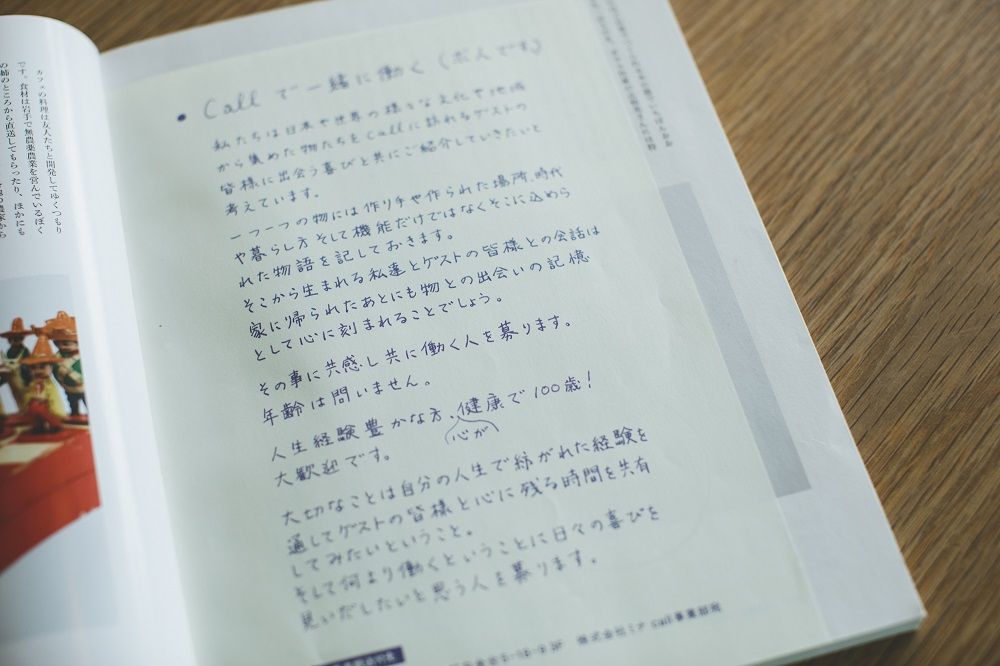 • Call で一緒に働く (求人です)
私たちは日本や世界の様々な文化や地域
から集めた物たちをCallに訪れるゲストの
皆様に出会う喜びと共にご紹介していきたいと
考えています。
一つ一つの物には作り手や作られた場所、時代
や暮らし方そして機能だけではなくそこに込めら
れた物語を記しておきます。
そこから生まれる私達とゲストの皆様との会話は
家に帰られたあとにも物との出会いの記憶
として心に刻まれることでしょう。
その事に共感し共に働く人を募ります。
年齢は問いません。
人生経験豊かな方、健康で100歳!
心が
大歓迎です。
大切なことは自分の人生で紡がれた経験を
通してゲストの皆様と心に残る時間を共有
してみたいということ。
そして何より働くということに日々の喜びを
見いだしたいと思う人を募ります。
株式会社ミナ Call事業部宛
カフェの料理は友人たちと開発してゆくつもり
です。食材は岩手で無農薬農業を営んでいるぼく
の姉のところから直送してもらったり、ほかにも